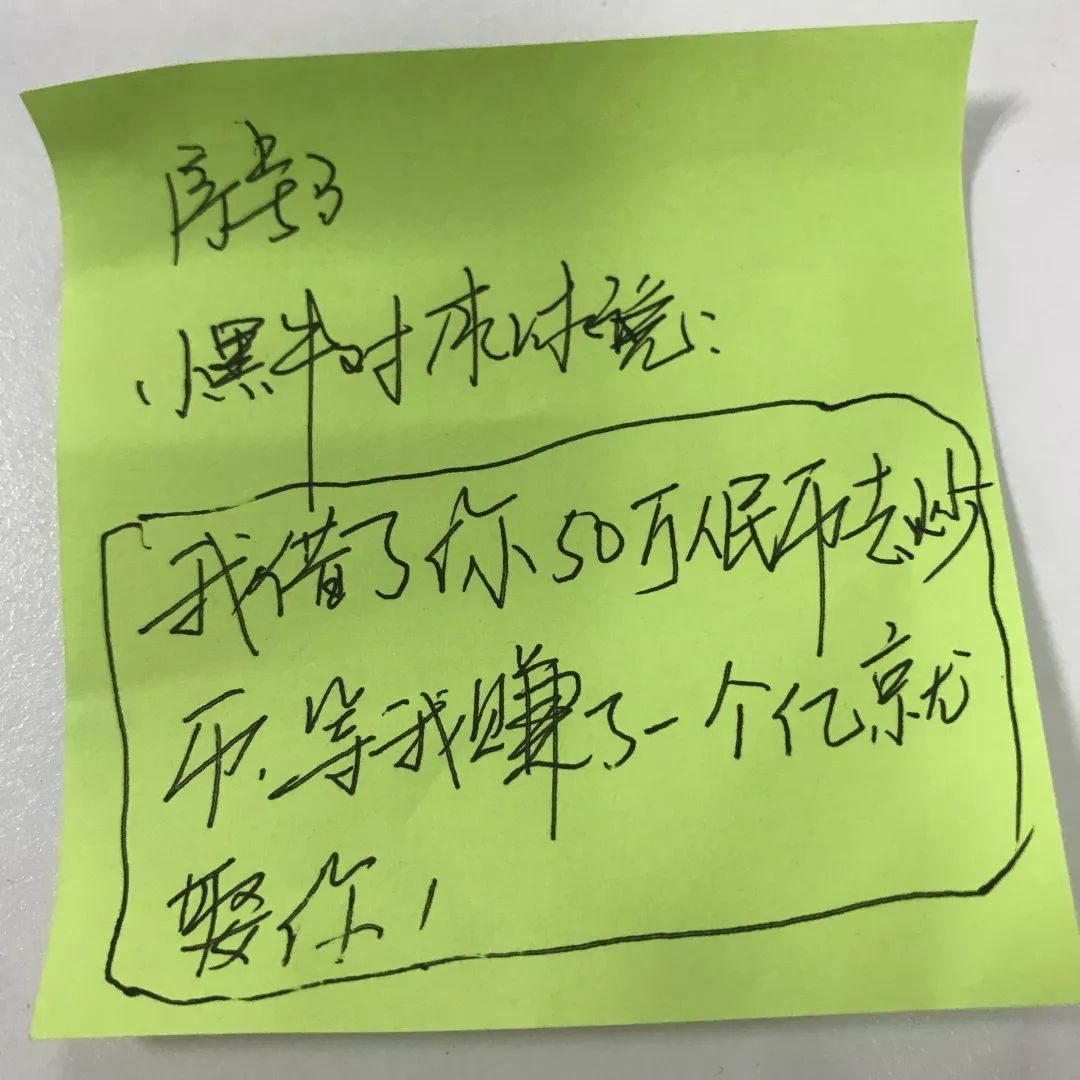 序
小黑牛对说:
我借了你50万人民币去炒
币,等我赚了一个亿就
娶你!